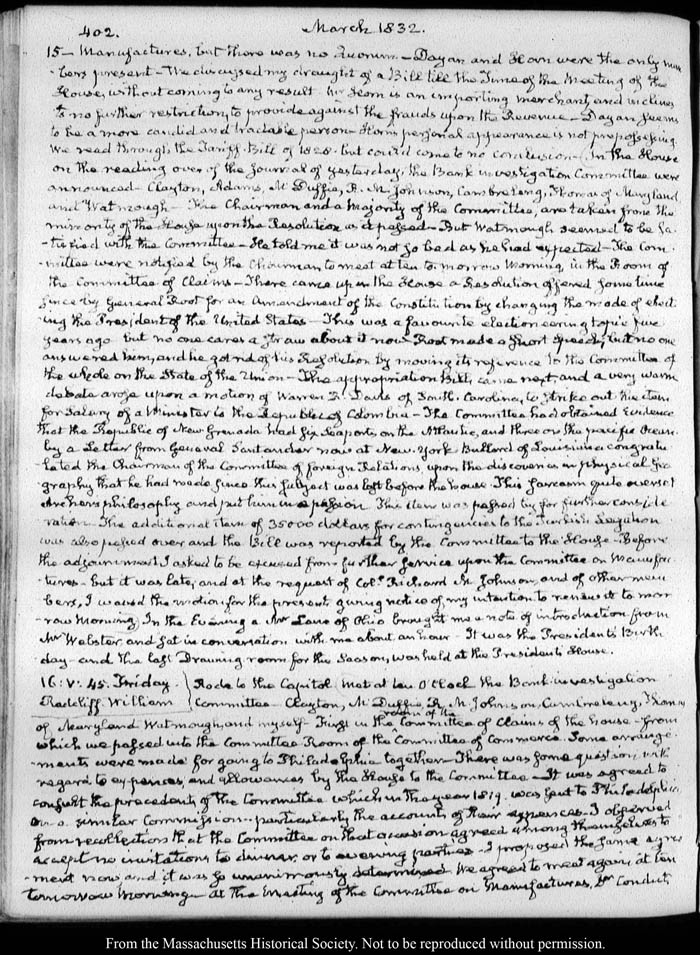 402. March 1832.
15 — Manufactures, but there was no Quorum — Dayan and Horn were the only mem-
bers present — We discussed my draught of a Bill till the Time of the Meeting of the
House, without coming to any result. Mr Horn is an importing merchant, and inclines
to no further restrictions to provide against the frauds upon the Revenue — Dayan seems
to be a more candid and tractable person — Horn's personal appearance is not prepossessing.
We read through the Tariff Bill of 1828. but could come to no conclusion — In the House
on the reading over of the Journal of yesterday, the Bank investigation Committee were
announced — Clayton, Adams, McDuffie, R. M. Johnson, Cambreleng, Thomas of Maryland
and Watmough — The Chairman and a Majority of the Committee, are taken from the
minority of the House upon the Resolution as it passed — But Watmough seemed to be sa-
tisfied with the Committee — He told me it was not so bad as he had expected — The Com-
mittee were notified by the Chairman to meet at ten to-morrow Morning, in the Room of
the Committee of Claims — There came up in the House a Resolution offered some time
since by General Root for an Amendment of the Constitution by changing the mode of elect-
ing the President of the United States — This was a favourite electioneering topic five
years ago but no one cares a straw about it now. Root made a short speech, but no one
answered him, and he got rid of his Resolution by moving its reference to the Committee of
the whole on the State of the Union — The appropriation Bill, came next, and a very warm
debate arose upon a motion of Warren R. Davis of South Carolina, to strike out the item
for Salary of a Minister to the Republic of Colombia — The Committee had obtained Evidence
that the Republic of New Grenada had six Seaports on the Atlantic, and three on the pacific Ocean.
by a Letter from General Santander now at New-York. Bullard of Louisiana congratu-
lated the Chairman of the Committee of foreign Relations, upon the discoveries in physical Geo-
graphy that he had made since this subject was last before the house. This sarcasm quite overset
Archer's philosophy and put him in a passion. This item was passed by for further conside-
ration. The additional item of 35000 dollars for contingencies to the Turkish Legation
was also passed over and the Bill was reported by the Committee to the House — Before
the adjournment I asked to be excused from further service upon the Committee on Manufac-
tures — but it was late, and at the request of Col. Richard M. Johnson, and of other mem-
bers, I waived the motion for the present giving notice of my intention to renew it to-mor-
row Morning. In the Evening a Mr Lane of Ohio brought me a note of introduction from
Mr Webster, and sat in conversation with me about an hour — It was the President's Birth
day — and the last Drawing room for the Season, was held at the President's House.
16. V: 45. Friday. Rode to the Capitol. Met at ten O'Clock the Bank investigation
Radcliff William Committee — Clayton, McDuffie, R. M. Johnson, Cambreleng, Thomas
of Maryland Watmough, and myself — First in the room of the Committee of Claims of the house — from
which we passed into the Committee Room of the Committee of Commerce. Some arrange-
ments were made for going to Philadelphia together — There was some question, with
regard to expences, and allowances by the House to the Committee — It was agreed to
consult the precedents of the Committee which in the year 1819. was sent to Philadelphia
on a similar Commission — particularly the accounts of their expences — I observed
from recollection that the Committee on that occasion agreed among themselves to
accept no invitations to dinner, or to evening parties — I proposed the same agree-
ment now, and it was so unanimously determined. We agreed to meet again, at ten
tomorrow Morning — At the Meeting of the Committee on Manufactures, Mr Condict,
From the Massachusetts Historical Society. Not to be reproduced without permission.